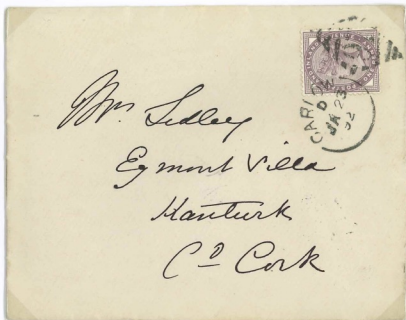 CARLOW
D
JA 23
92
Mrs Sedley
Egmont Villa
Kanturk
Co Cork